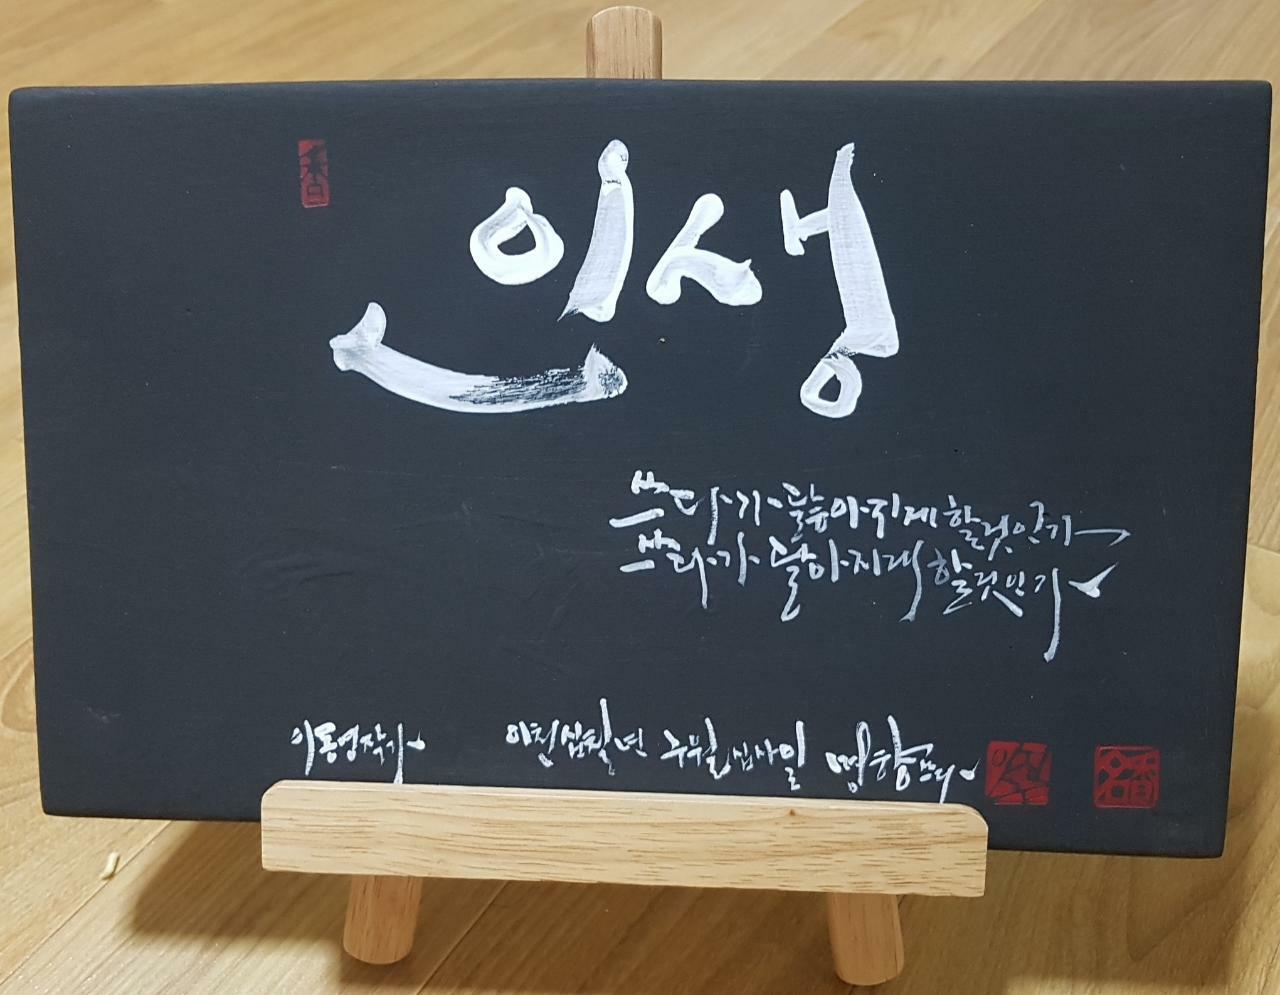 인생
쓰다가 닳아지게 할것인가
쓰다가 달아지게 할것인가
이동영작가 이천십칠년 구월십사일 명향쓰다
香
名香